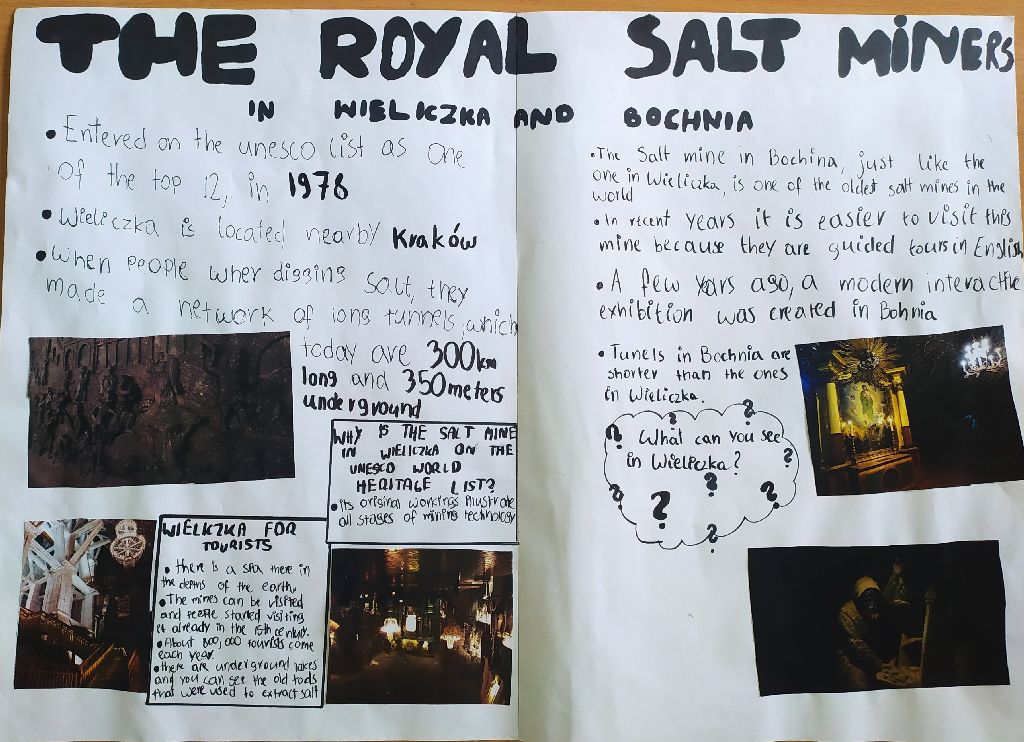 THE ROYAL SALT MINERS
IN WIELICZKA AND BOCHNIA
• Entered on the unesco list as one
of the top 12, in 1978
• Wieliczka is located nearby Kraków
• When people wher digging salt, they
made a network of long tunnels, which
today are 300km
long and 350 meters
underground
WHY IS THE SALT MINE
IN WIELICZKA ON THE
UNESCO WORLD
HERITAGE LIST?
• its original workings illustrate
all stages of mining technology
WIELICZKA FOR
TOURISTS
• there is a spa there in
the depths of the earth.
• The mines can be visited
and people started visiting
it already in the 15th century.
• About 800,000 tourists come
each year.
• there are underground lakes
and you can see the old tools
that were used to extract salt
• The Salt mine in Bochina, just like the
one in Wieliczka, is one of the oldest salt mines in the
world
• In recent years it is easier to visit this
mine because they are guided tours in English
• A few yars ago, a modern interactive
exhibition was created in Bohnia
• Tunels in Bochnia are
shorter than the ones
in Wieliczka.
What can you see
in Wieliczka?